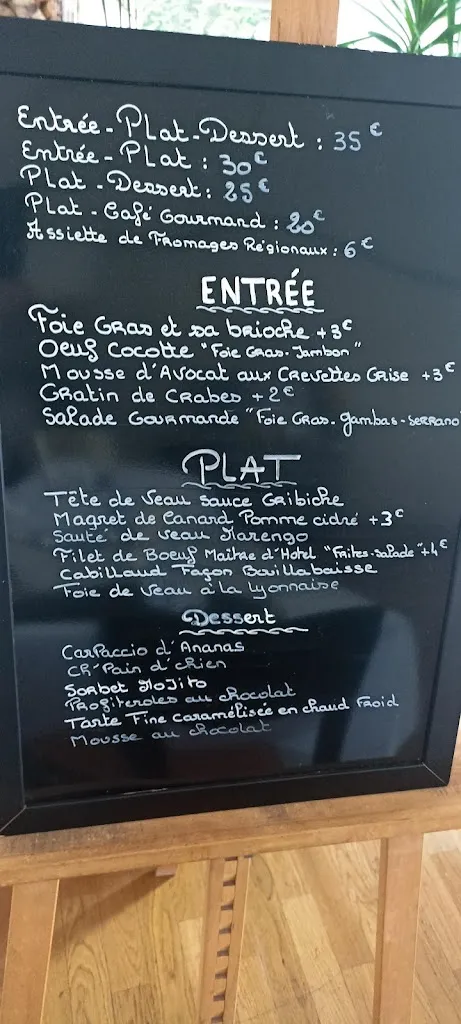 Entrée - Plat - Dessert : 35€
Entrée - Plat : 30€
Plat - Dessert : 25€
Plat - Café Gourmand : 20€
Assiette de Fromages Régionaux : 6€
ENTRÉE
Foie Gras et sa brioche +3€
Oeuf Cocotte "Foie Gras - Jambon"
Mousse d'Avocat aux Crevettes Grise +3€
Gratin de Crabes +2€
Salade Gourmande "Foie Gras - gambas - Serrano
PLAT
Tête de Veau sauce Gribiche
Magret de Canard Pomme cidré +3€
Sauté de veau Marengo
Filet de Boeuf Maître d'Hotel "Frites - salade" +4€
Cabillaud Façon Bouillabaisse
Foie de Veau à la Lyonnaise
Dessert
Carpaccio d'Ananas
Ch'Pain d'chien
Sorbet Mojito
Profiteroles au chocolat
Tarte Fine caramélisée en chaud Froid
Mousse au chocolat